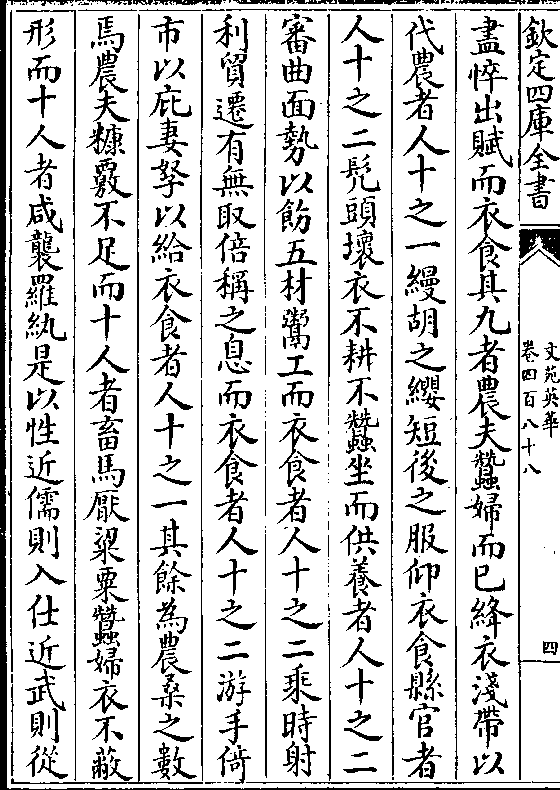 欽定四庫全書
文苑英華
卷四百八十八
四
盡悴出賦而衣食其九者農夫蠶婦而已絳衣淺帶以
代農者人十之一縵胡之纓短後之服仰衣食縣官者
人十之二髠頭壞衣不耕不蠶坐而供養者人十之二
審曲面勢以飭五材鬻工而衣食者人十之二乘時射
利貿遷有無取倍稱之息而衣食者人十之二游手倚
市以庇妻孥以給衣食者人十之一其餘為農桑之數
焉農夫糠覈不足而十人者畜馬厭粱粟蠶婦衣不蔽
形而十人者咸襲羅紈是以性近儒則入仕近武則從